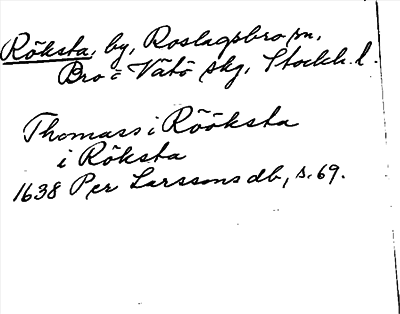 Röksta, by, Roslagsbro sn,
Bro o Vätö skg, Stockh. l.
Thomass i Röö̈ksta
i Röksta
1638 Per Larssons db, s. 69.